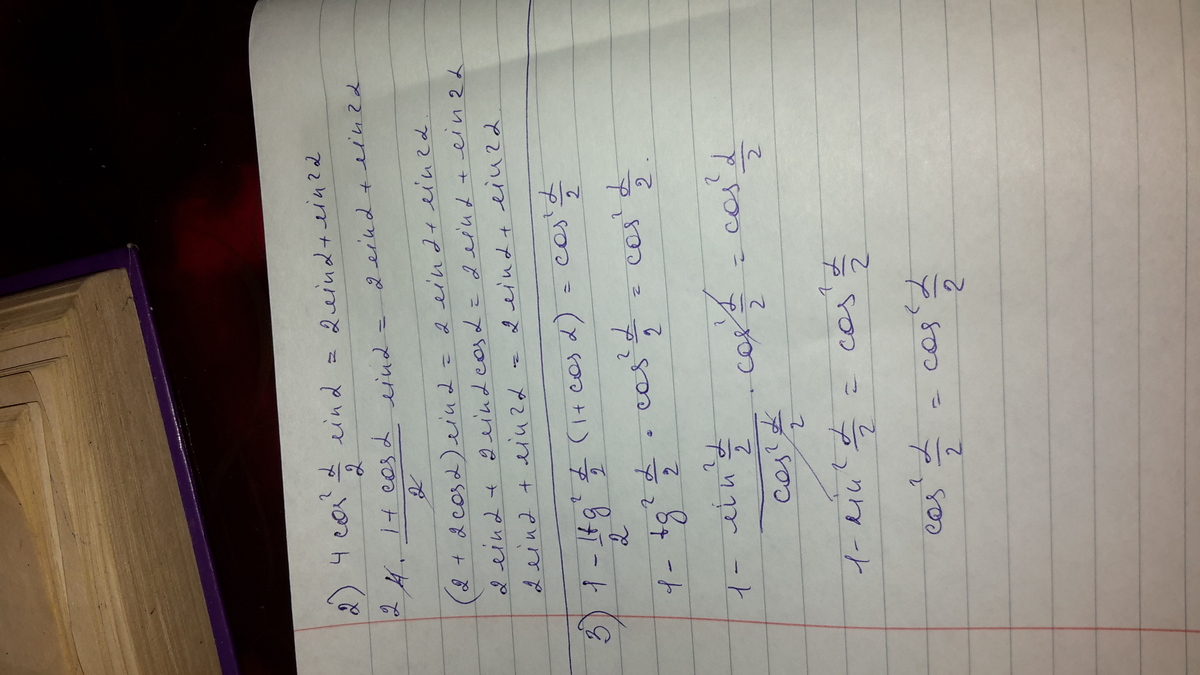 2) 4 cos² α/2 sin α = 2 sin α + sin 2α
2 4 · (1 + cos α)/2 sin α = 2 sin α + sin 2α
(2 + 2 cos α) sin α = 2 sin α + sin 2α.
2 sin α + 2 sin α cos α = 2 sin α + sin 2α
2 sin α + sin 2α = 2 sin α + sin 2α.
3) 1 - 1/2 tg² α/2 (1 + cos α) = cos² α/2
1 - tg² α/2 · cos² α/2 = cos² α/2.
1 - (sin² α/2)/(cos² α/2) · cos² α/2 = cos² α/2
1 - sin² α/2 = cos² α/2
cos² α/2 = cos² α/2